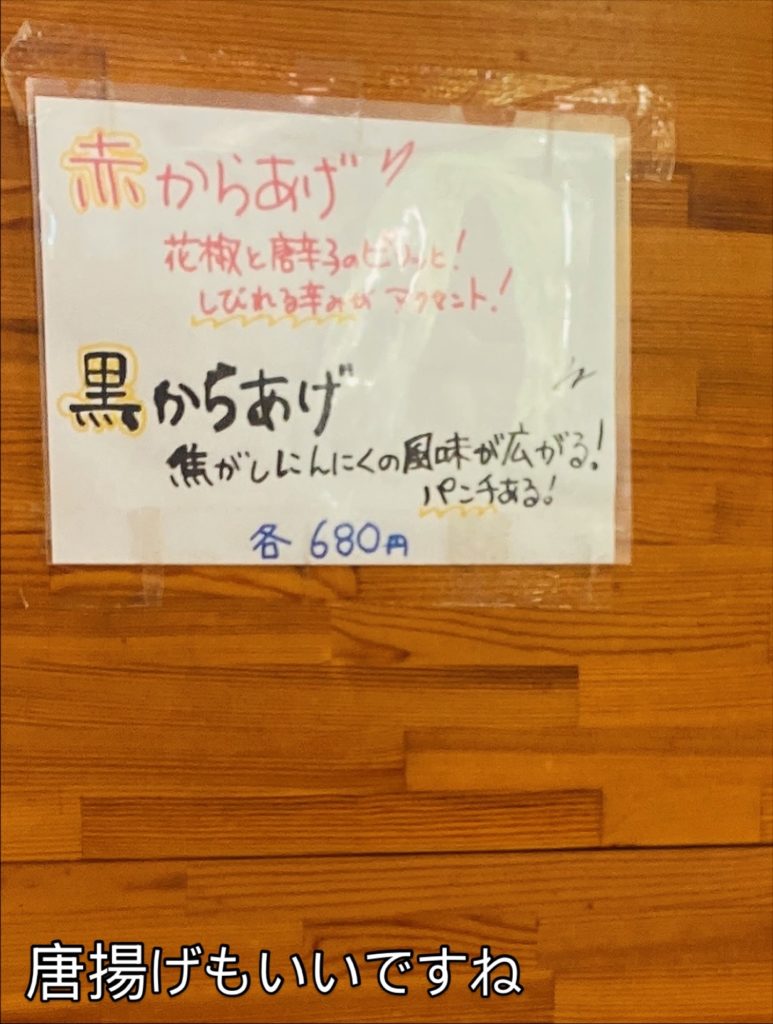 赤からあげ
花椒と唐辛子のピリッと!
しびれる辛みがアクセント!
黒からあげ
焦がしにんにくの風味が広がる!
パンチある!
各 680円
唐揚げもいいですね